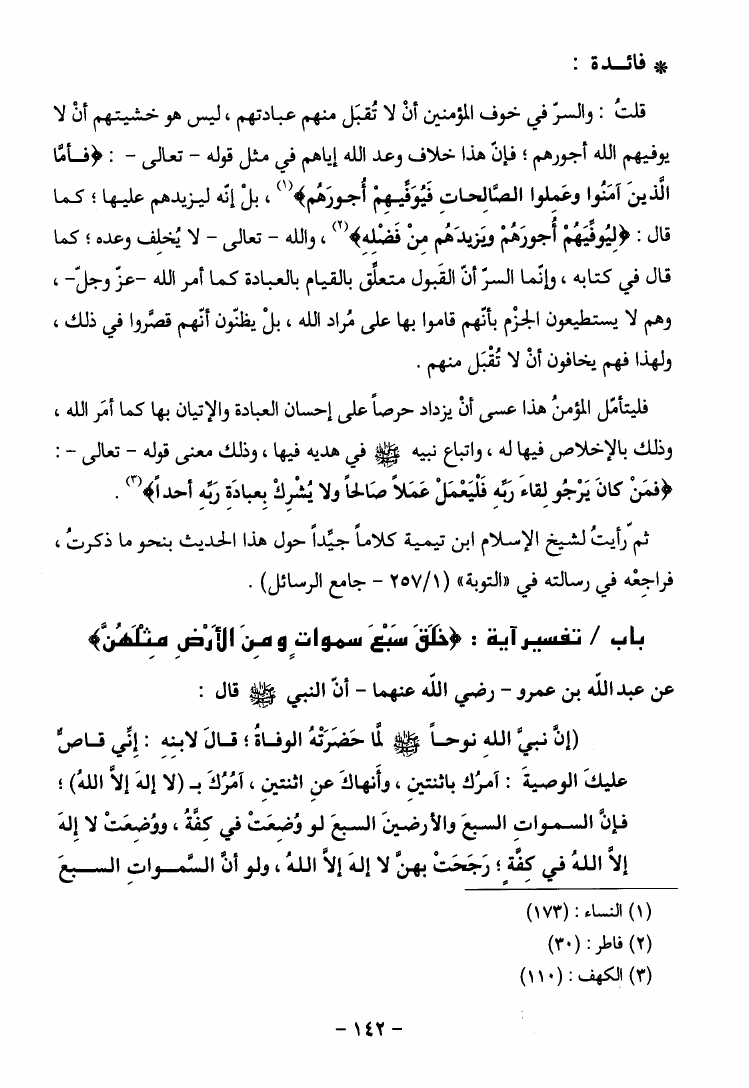 * فائـدة :
قلتُ : والسرّ في خوف المؤمنين أنْ لا تُقبَل منهم عبادتهم ، ليس هو خشيتهم أنْ لا
يوفيهم الله أجورهم ؛ فإنّ هذا خلاف وعد الله إياهم في مثل قوله – تعالى – : ﴿فـأمَّا
الَّذينَ آمَنُوا وعَملوا الصَّالحات فَيُوَفِّيـهِمْ أُجـورَهُم﴾(١) ، بلْ إنّه ليـزيدهم عليـها ؛ كمـا
قال : ﴿ليُوفِّيَهُمْ أُجورَهُمْ ويَزيدَهُم مِنْ فَضْلِه﴾(٢) ، والله – تعالى – لا يُخلف وعده ؛ كما
قال في كتابه ، وإنّما السرّ أنّ القَبول متعلِّق بالقيام بالعبادة كمـا أمر الله –عزّ وجلّ– ،
وهم لا يستطيعون الجزْم بأنّهم قاموا بها على مُراد الله ، بلْ يظنّون أنّهم قصَّروا في ذلك ،
ولهذا فهم يخافون أنْ لا تُقْبَل منهم .
فليتأمّل المؤمنُ هذا عسى أنْ يزداد حرصاً على إحسان العبادة والإتيان بها كما أمَر الله ،
وذلك بالإخلاص فيها له ، واتباع نبيه ﷺ في هديه فيها ، وذلك معنى قوله – تعالى – :
﴿فمَنْ كانَ يَرْجُو لقاءَ رَبِّه فَلْيَعْمَلْ عَمَلاً صَالحاً ولا يُشْرِكْ بِعبادَة رَبِّه أحداً﴾(٣) .
ثم رأيتُ لشيخ الإسلام ابن تيمية كلاماً جيِّداً حول هذا الحديث بنحو ما ذكرتُ ،
فراجعْه في رسالته في «التوبة» (٢٥٧/١ – جامع الرسائل) .
باب / تفسير آية : ﴿خلَقَ سَبْعَ سموات ومنَ الأَرْض مثْلَهُنَّ﴾
عن عبدالله بن عمرو – رضي الله عنهما – أنّ النبي ﷺ قال :
(إنَّ نبيَّ الله نوحـاً ﷺ لمَّا حَضَرَتْهُ الوفـاةُ ؛ قـالَ لابـنِهِ : إنِّي قـاصٌّ
عليكَ الوصيةَ : آمرُك باثنتينِ ، وأنهاكَ عنِ اثنتينِ ، آمُرُكَ بـ (لا إلهَ إلاَّ اللهُ) ؛
فـإنَّ السـمواتِ السبعَ والأرضينَ السبعَ لو وُضعَتْ في كفَّةٍ ، ووُضعَتْ لا إلهَ
إلاَّ اللهُ في كفَّةٍ ؛ رَجَحَتْ بهنَّ لا إلهَ إلاَّ اللهُ ، ولو أنَّ السَّمـوات السـبعَ
(١) النساء : (١٧٣)
(٢) فاطر : (٣٠)
(٣) الكهف : (١١٠)
– ١٤٢ –